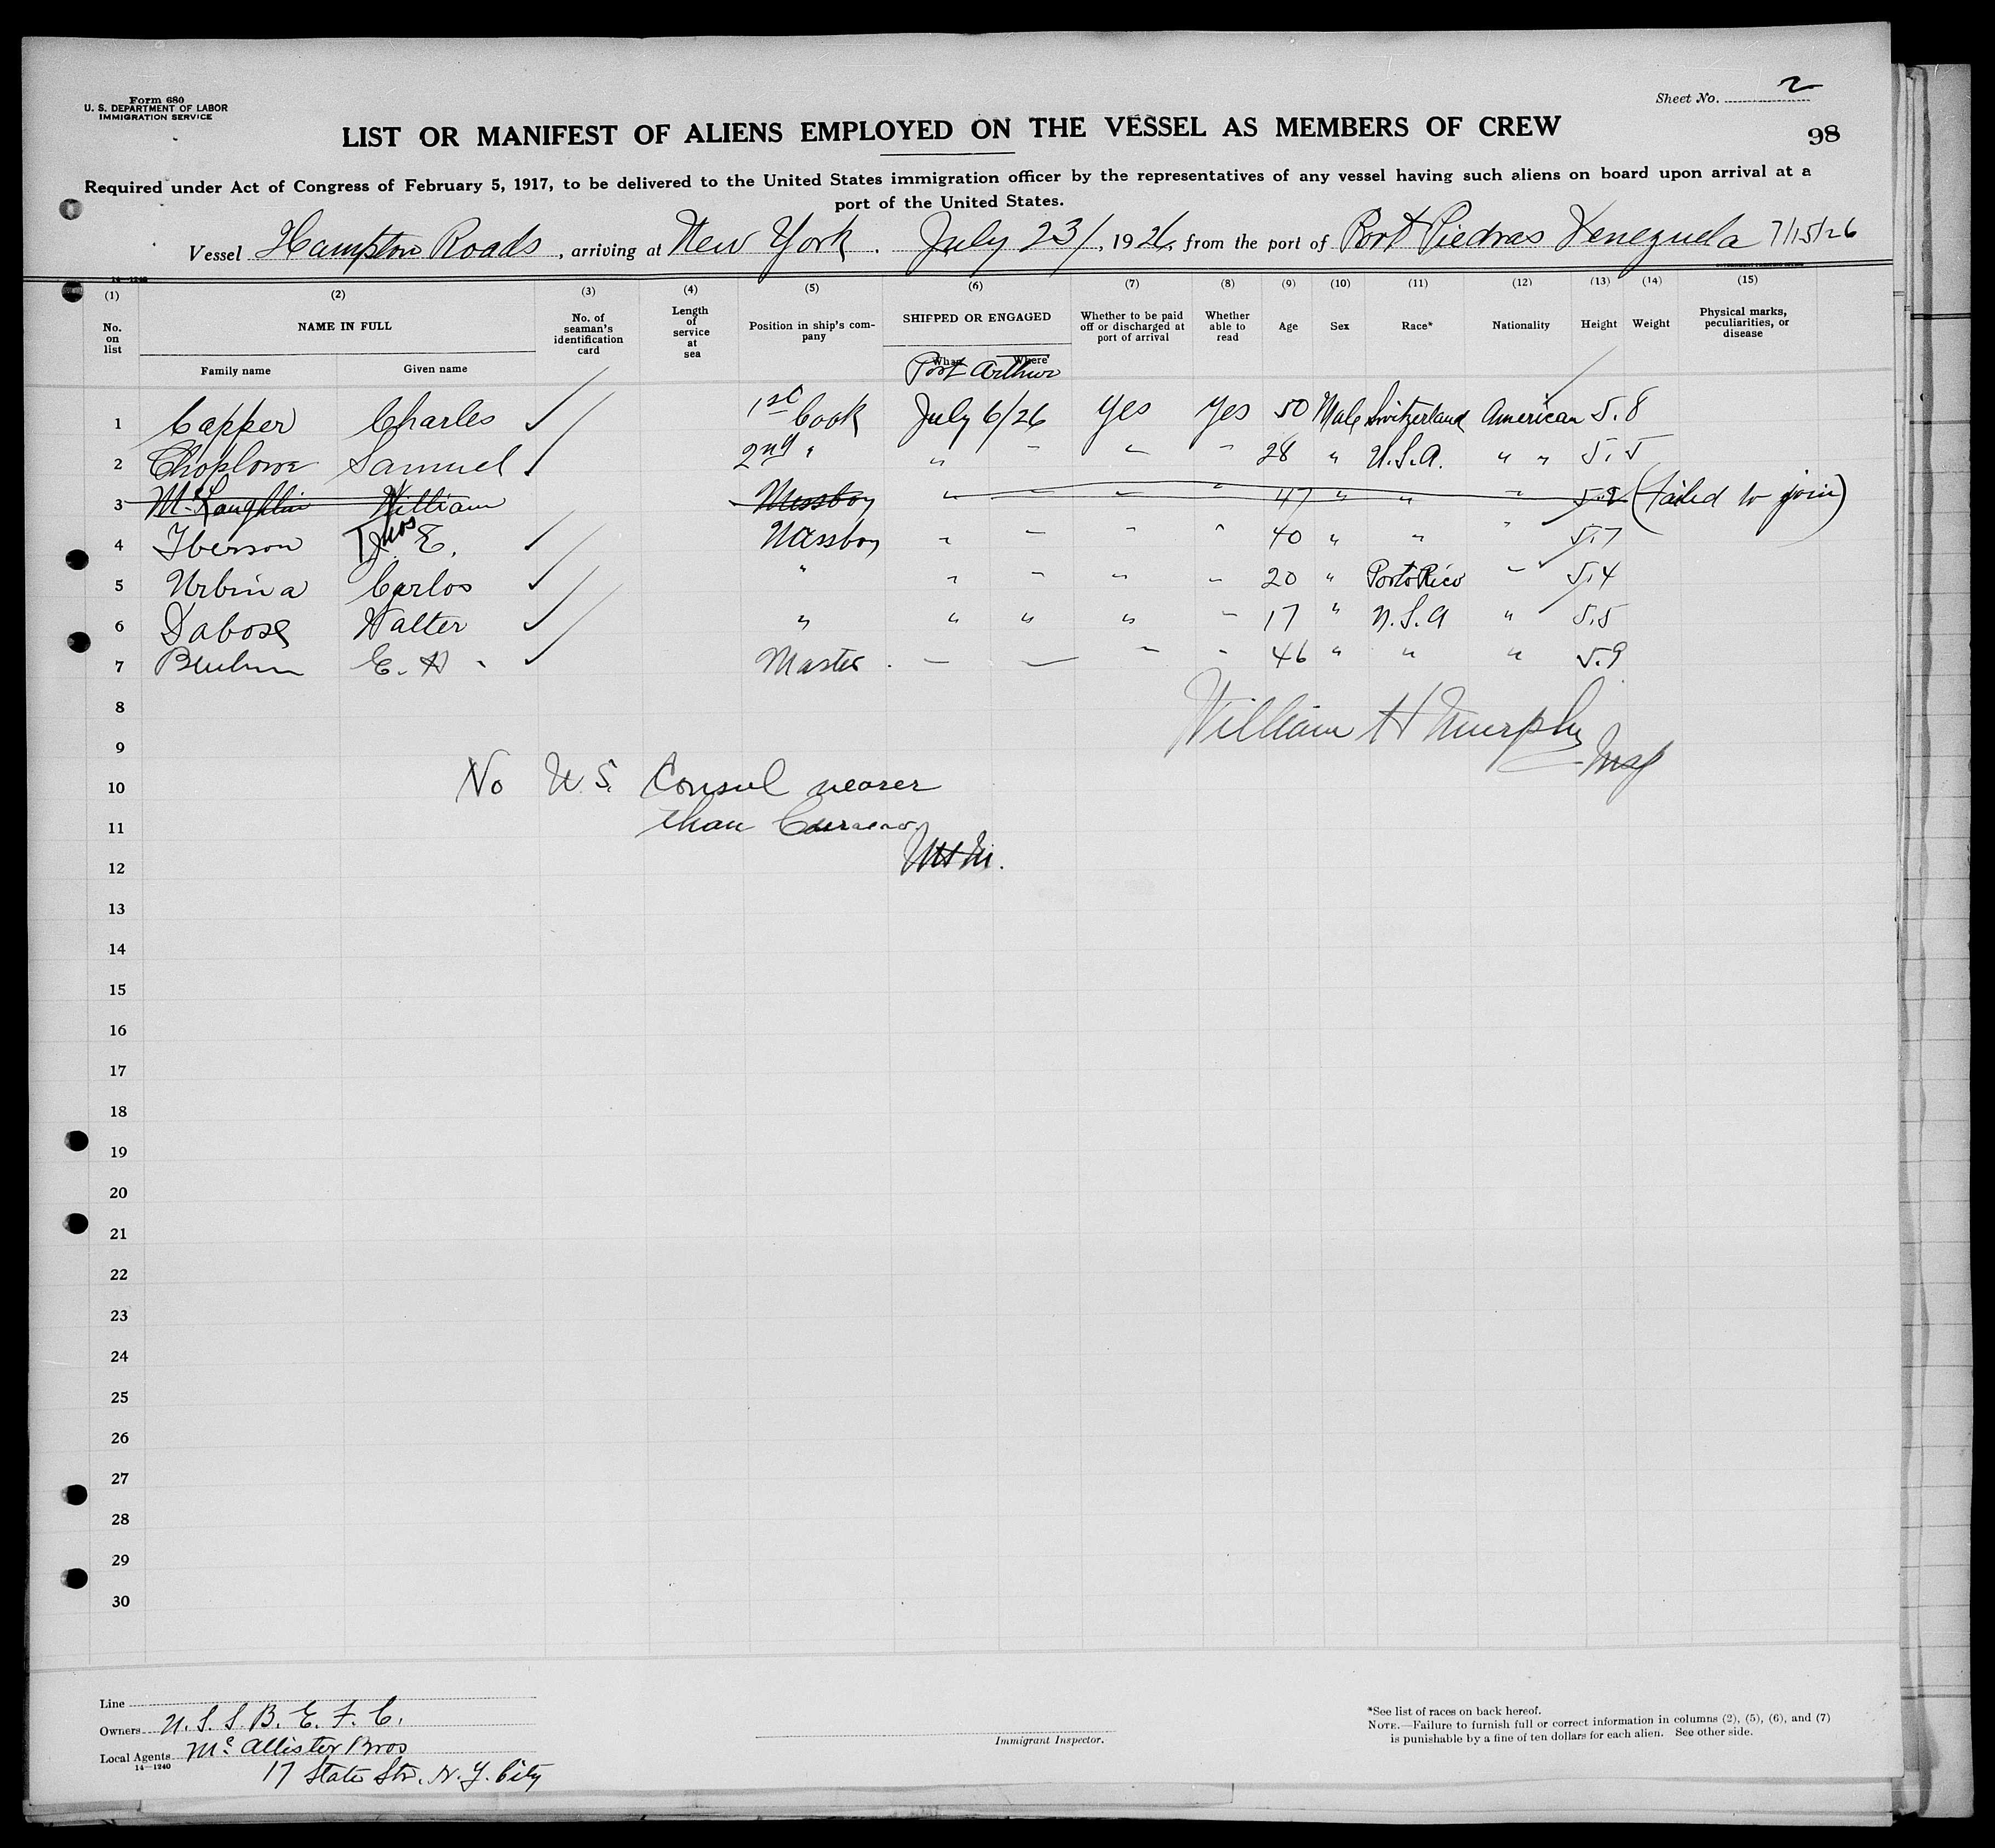 Form 680
U. S. DEPARTMENT OF LABOR
IMMIGRATION SERVICE
Sheet No. 2
98
LIST OR MANIFEST OF ALIENS EMPLOYED ON THE VESSEL AS MEMBERS OF CREW
Required under Act of Congress of February 5, 1917, to be delivered to the United States immigration officer by the representatives of any vessel having such aliens on board upon arrival at a
port of the United States.
Vessel Hampton Roads, arriving at New York. July 23/, 1926, from the port of Port Piedras Venezuela 7/15/26
14-1240
(1) (2) (3) (4) (5) (6) (7) (8) (9) (10) (11) (12) (13) (14) (15)
No. on list NAME IN FULL No. of seaman's identification card Length of service at sea Position in ship's company SHIPPED OR ENGAGED Whether to be paid off or discharged at port of arrival Whether able to read Age Sex Race* Nationality Height Weight Physical marks, peculiarities, or disease
Family name Given name When Where
Port Arthur
1 Capper Charles ✓ 1st Cook July 6/26 Yes Yes 50 Male Switzerland American 5.8
2 Samuel ✓ 2nd " " " " " 28 " U.S.A. " " 5.5
3 McLaughlin William Messboy " " " " 47 " " " (failed to join)
4 Iberson Thos E. ✓ Messboy " " " " 40 " " " 5.7
5 Urbina Carlos ✓ " " " " " 20 " Porto Rico " 5.4
6 Walter ✓ " " " " " 17 " U.S.A " 5.5
7 E. ✓ Master . — — " " 46 " " " 5.9
8
William H Murphy
9
Insp
10 No U.S. Consul nearer
11 than Curacao
12 WHM.
13
14
15
16
17
18
19
20
21
22
23
24
25
26
27
28
29
30
Line
Owners U. S. S. B. E. F. C.
Local Agents McAllister Bros
14-1240
17 State Str. N. Y. City
Immigrant Inspector.
*See list of races on back hereof.
NOTE.—Failure to furnish full or correct information in columns (2), (5), (6), and (7)
is punishable by a fine of ten dollars for each alien. See other side.